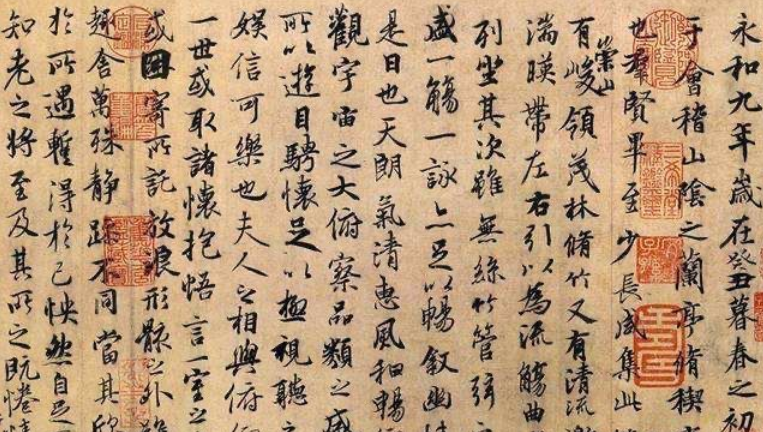 永和九年歲在癸丑暮春之初
于會稽山陰之蘭亭脩稧
也羣賢畢至少長咸集此
有崇山峻領茂林脩竹又有清流
湍暎帶左右引以為流觴曲
列坐其次雖無絲竹管弦
盛一觴一詠亦足以暢叙幽
是日也天朗氣清惠風和暢
觀宇宙之大俯察品類之盛
所以遊目騁懷足以極視聽之
娛信可樂也夫人之相與俯
一世或取諸懷抱悟言一室之
或因寄所託放浪形骸之外
趣舍萬殊静躁不同當其欣
於所遇蹔得於己怏然自足
知老之將至及其所之既惓